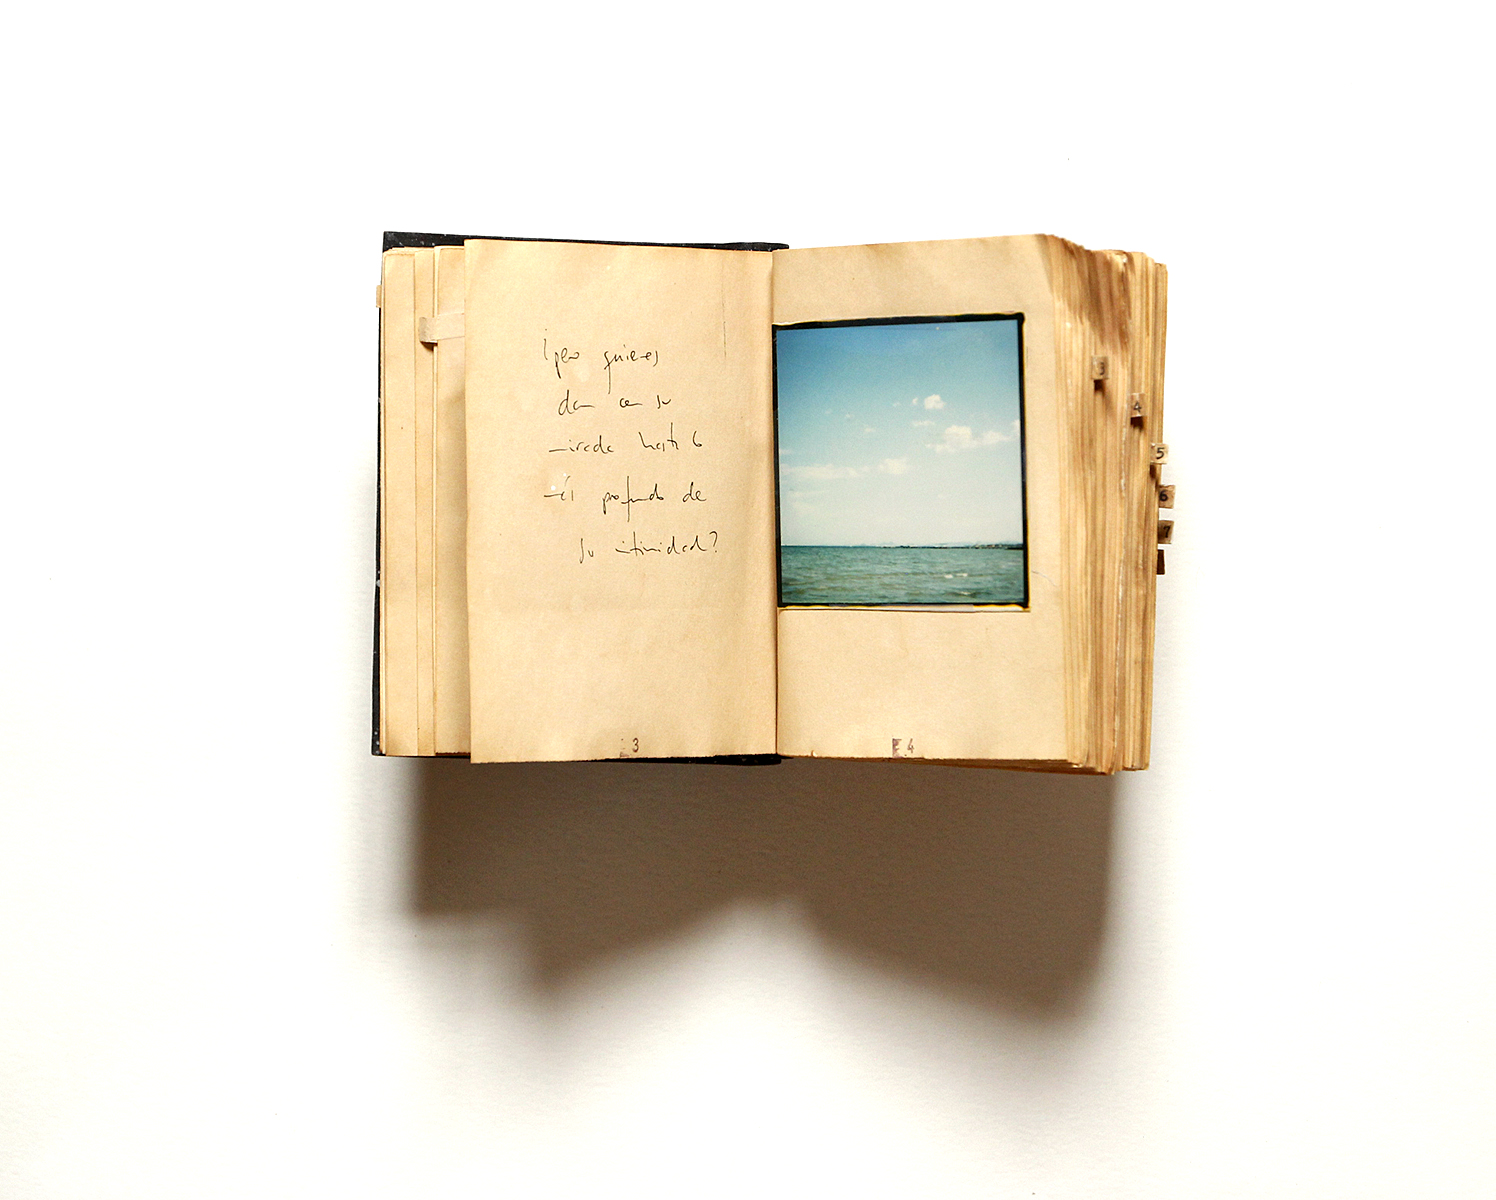 ¿pero quienes
dan con su
mirada hasta lo
más profundo de
su intimidad?
3
4
3
4
5
6
7